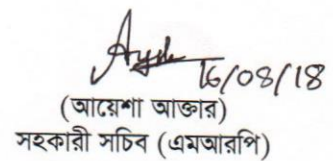 16/08/18
(আয়েশা আক্তার)
সহকারী সচিব (এমআরপি)